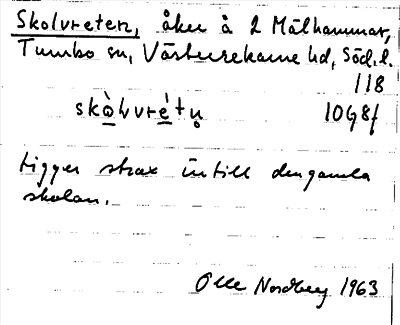 Skolvreten, åker å 2 Mälhammar,
Tumbo sn, Västerrekarne hd, Söd. l.
118
skòlvrétn̥ 10G8f
Ligger strax intill den gamla
skolan.
Olle Nordberg 1963